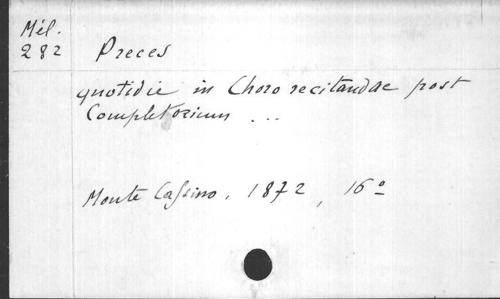 Mél.
282
Preces
quotidie in Choro recitandae post
Completorium ...
Monte Cassino, 1872, 16º